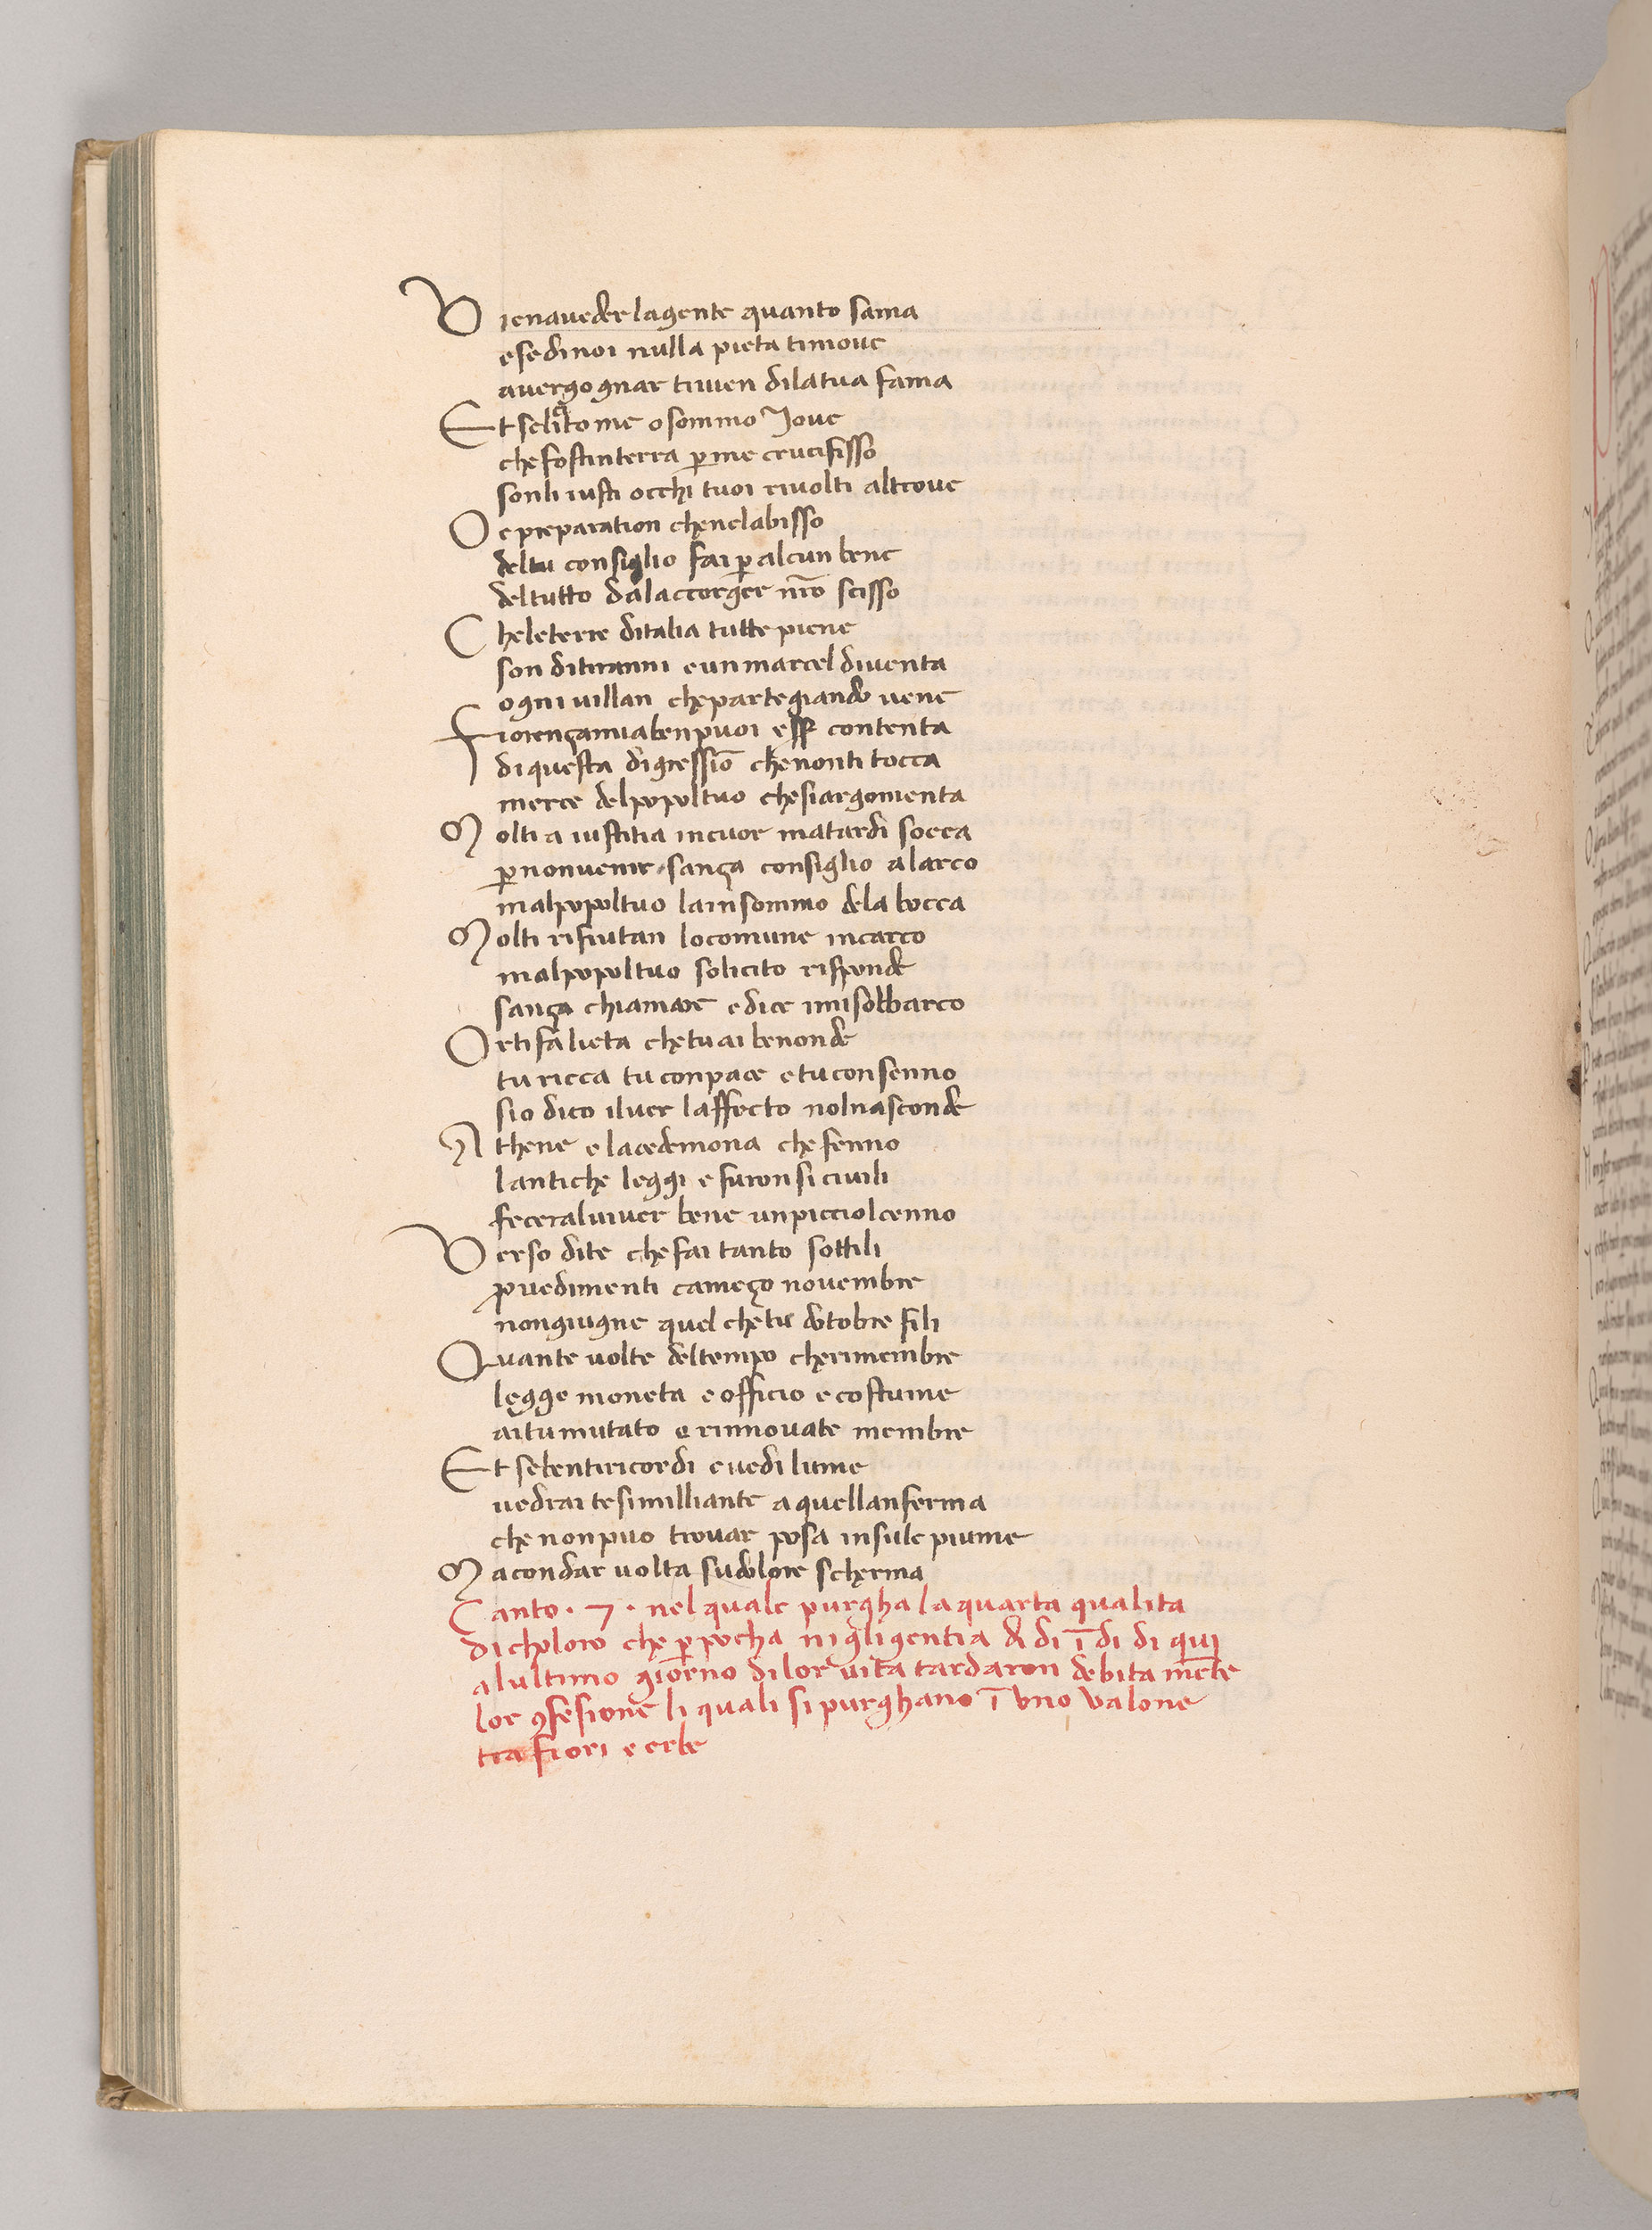 Vienaueder lagente quanto sama
esedinoi nulla pieta timoue
auergognar tiuien dilatua fama
Et selito me o sommo Joue
che fostinterra p me crucifisso
sonli iusti occhi tuoi riuolti altroue
O e preparation chenelabisso
deltu consiglio fai p alcun bene
deltutto dalaccorger nro scisso
Cheleterre ditalia tutte piene
son ditiranni eunmarcel diuenta
ogni uillan chepartegiando uene
Fiorençamia benpuoi esser contenta
diquesta digressiō chenonti tocca
merce delpopoltuo chesiargomenta
Molti a iustitia incuor matardi socca
p nonuenir sança consiglio alarco
malpopoltuo lainsommo dela bocca
Molti rifiutan locomune incarco
malpopoltuo solicito risponde
sança chiamare edice imisobbarco
Ortifa lieta chetuai benonde
turicca tuconpace etuconsenno
sio dico iluer laffecto nolnasconde
Athene elacedemona chefenno
lantiche leggi efuronsiciuili
feceraluiuer bene unpicciolcenno
Verso dite chefai tanto sottili
prouedimenti cameço nouembre
nongiugne quel chetu dotobre fili
Quante uolte deltempo cherimembre
legge moneta eofficio ecostume
aitumutato e rinnouate membre
Et sebentiricordi euedi lume
uedrai tesimilliante aquellanferma
che nonpuo trouar posa insule piume
Macondar uolta sudolore scherma
Canto · 7 · nel quale purgha laquarta qualita
dicholoro che p pocha nigligentia di di ī di di qui
alultimo giorno dilor uita tardaron debita mēte
lor 9fesione li quali si purghano ī uno ualone
tra fiori e erbe